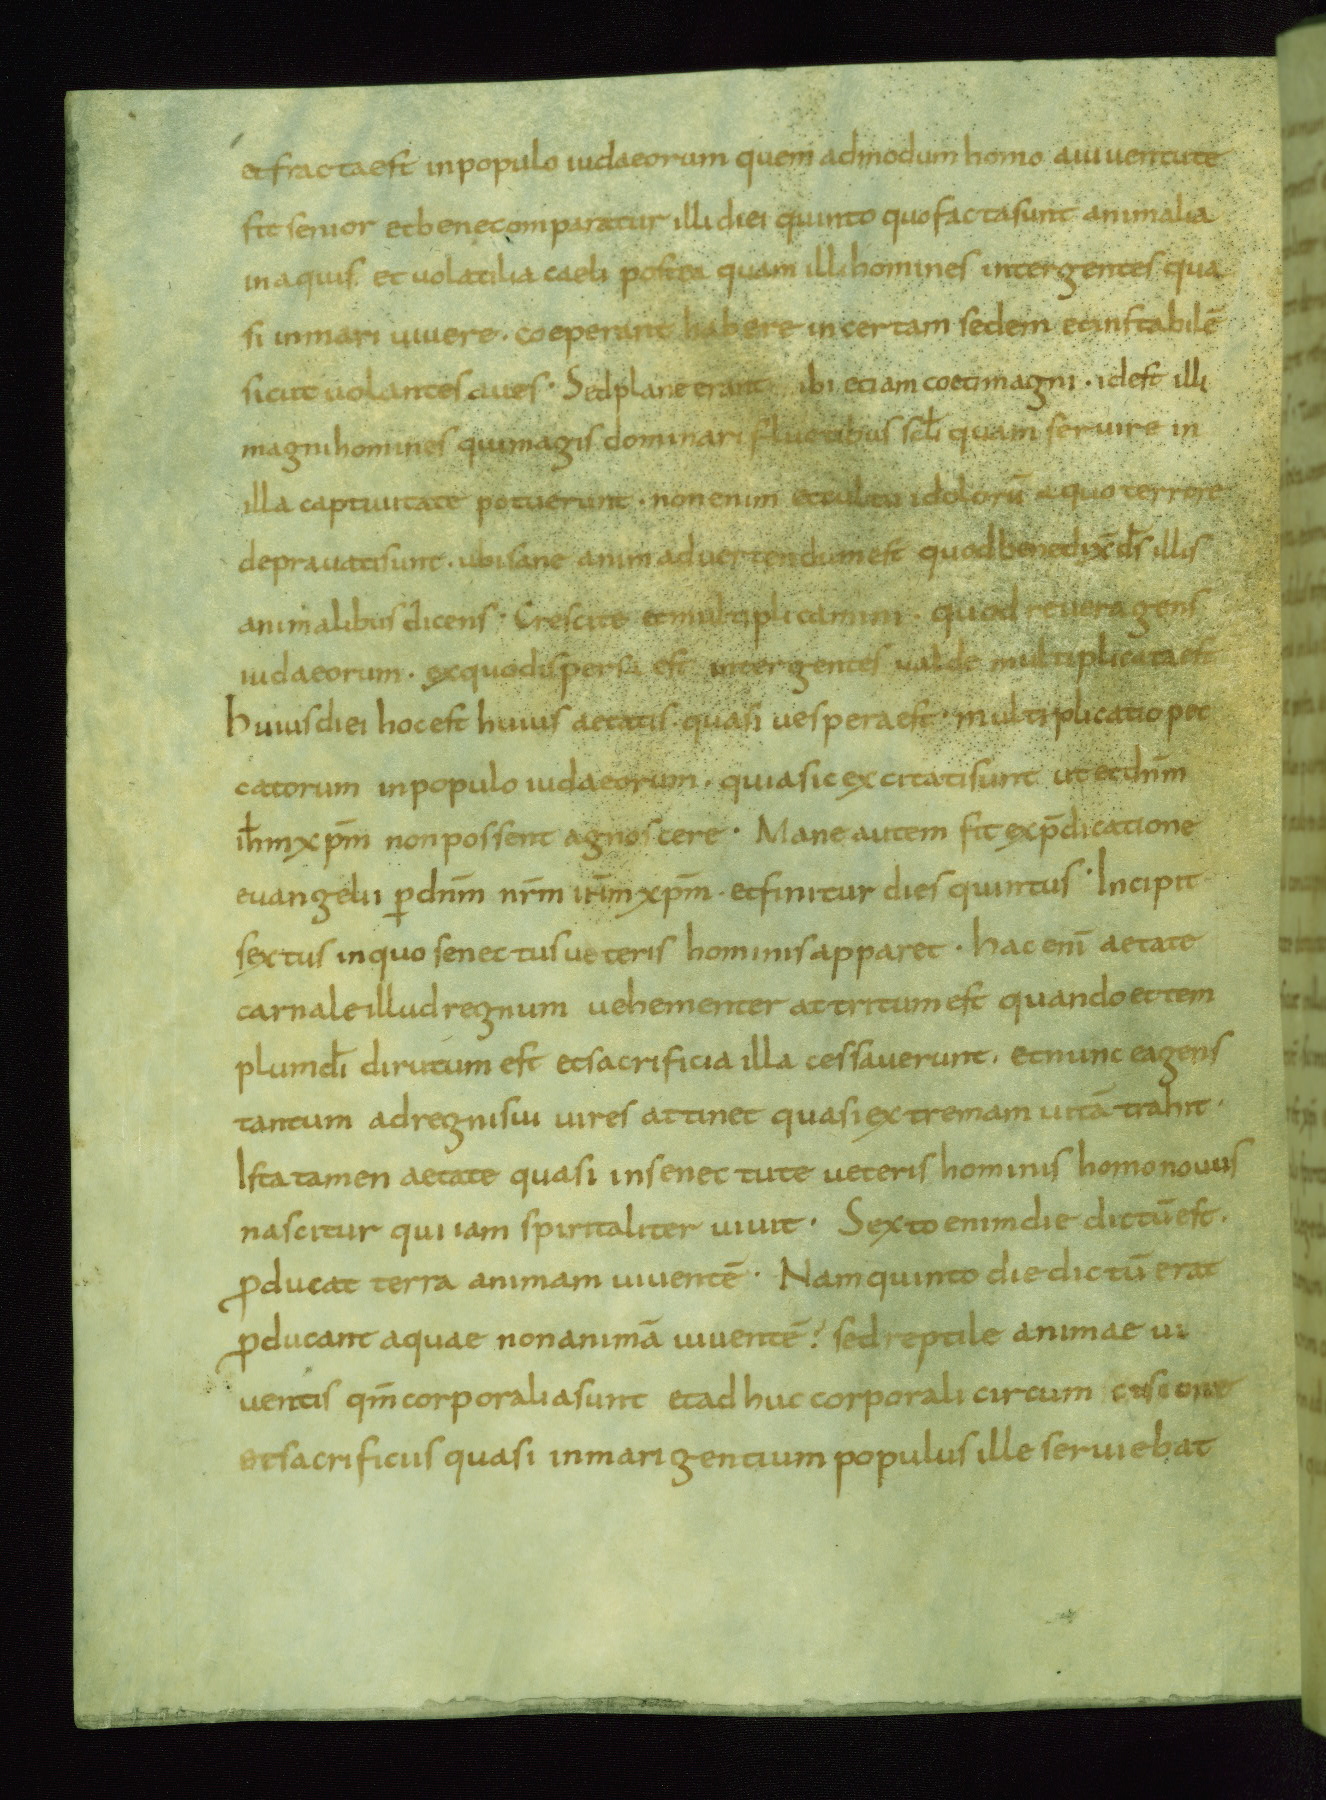 et fracta est in populo iudaeorum quem admodum homo a iuuentute
fit senior et bene comparatur illi diei quinto quo facta sunt animalia
in aquis. et uolatilia caeli postea quam illi homines inter gentes qua
si in mari uiuere. coeperunt habere incertam sedem et instabilē
sicut uolantes aues. Sed plane erant ibi etiam coeti magni. id est illi
magni homines qui magis dominari fluctibus scłi quam seruire in
illa captiuitate potuerunt. non enim et cultu idolorū a quo terrore
deprauati sunt. ubi sane animaduertendum est quod benedix̄ d̄s illis
animalibus dicens. Crescite et multiplicamini. quod reuera gens
iudaeorum. ex quo dispersa est inter gentes ualde multiplicata est
Huius diei hoc est huius aetatis quasi uespera est. multiplicatio pec
catorum in populo iudaeorum. quia sic excitati sunt ut et dn̄m
ih̄m xp̄m non possent agnoscere. Mane autem fit ex p̄dicatione
euangelii ꝑ dn̄m nr̄m ih̄m xp̄m. et finitur dies quintus. Incipit
sextus in quo senectus ueteris hominis apparet. hac enī aetate
carnale illud regnum uehementer attritum est quando et tem
plum dī dirutum est et sacrificia illa cessauerunt. et nunc ea gens
tantum ad regni sui uires attinet quasi extremam uitā trahit.
Ista tamen aetate quasi in senectute ueteris hominis homo nouus
nascitur qui iam spiritaliter uiuit. Sexto enim die dictū est.
ꝓducat terra animam uiuentē. Nam quinto die dictū erat
ꝓducant aquae non animā uiuentē? sed reptile animae ui
uentis qm̄ corporalia sunt et adhuc corporali circumcisione
et sacrificiis quasi in mari gentium populus ille seruiebat